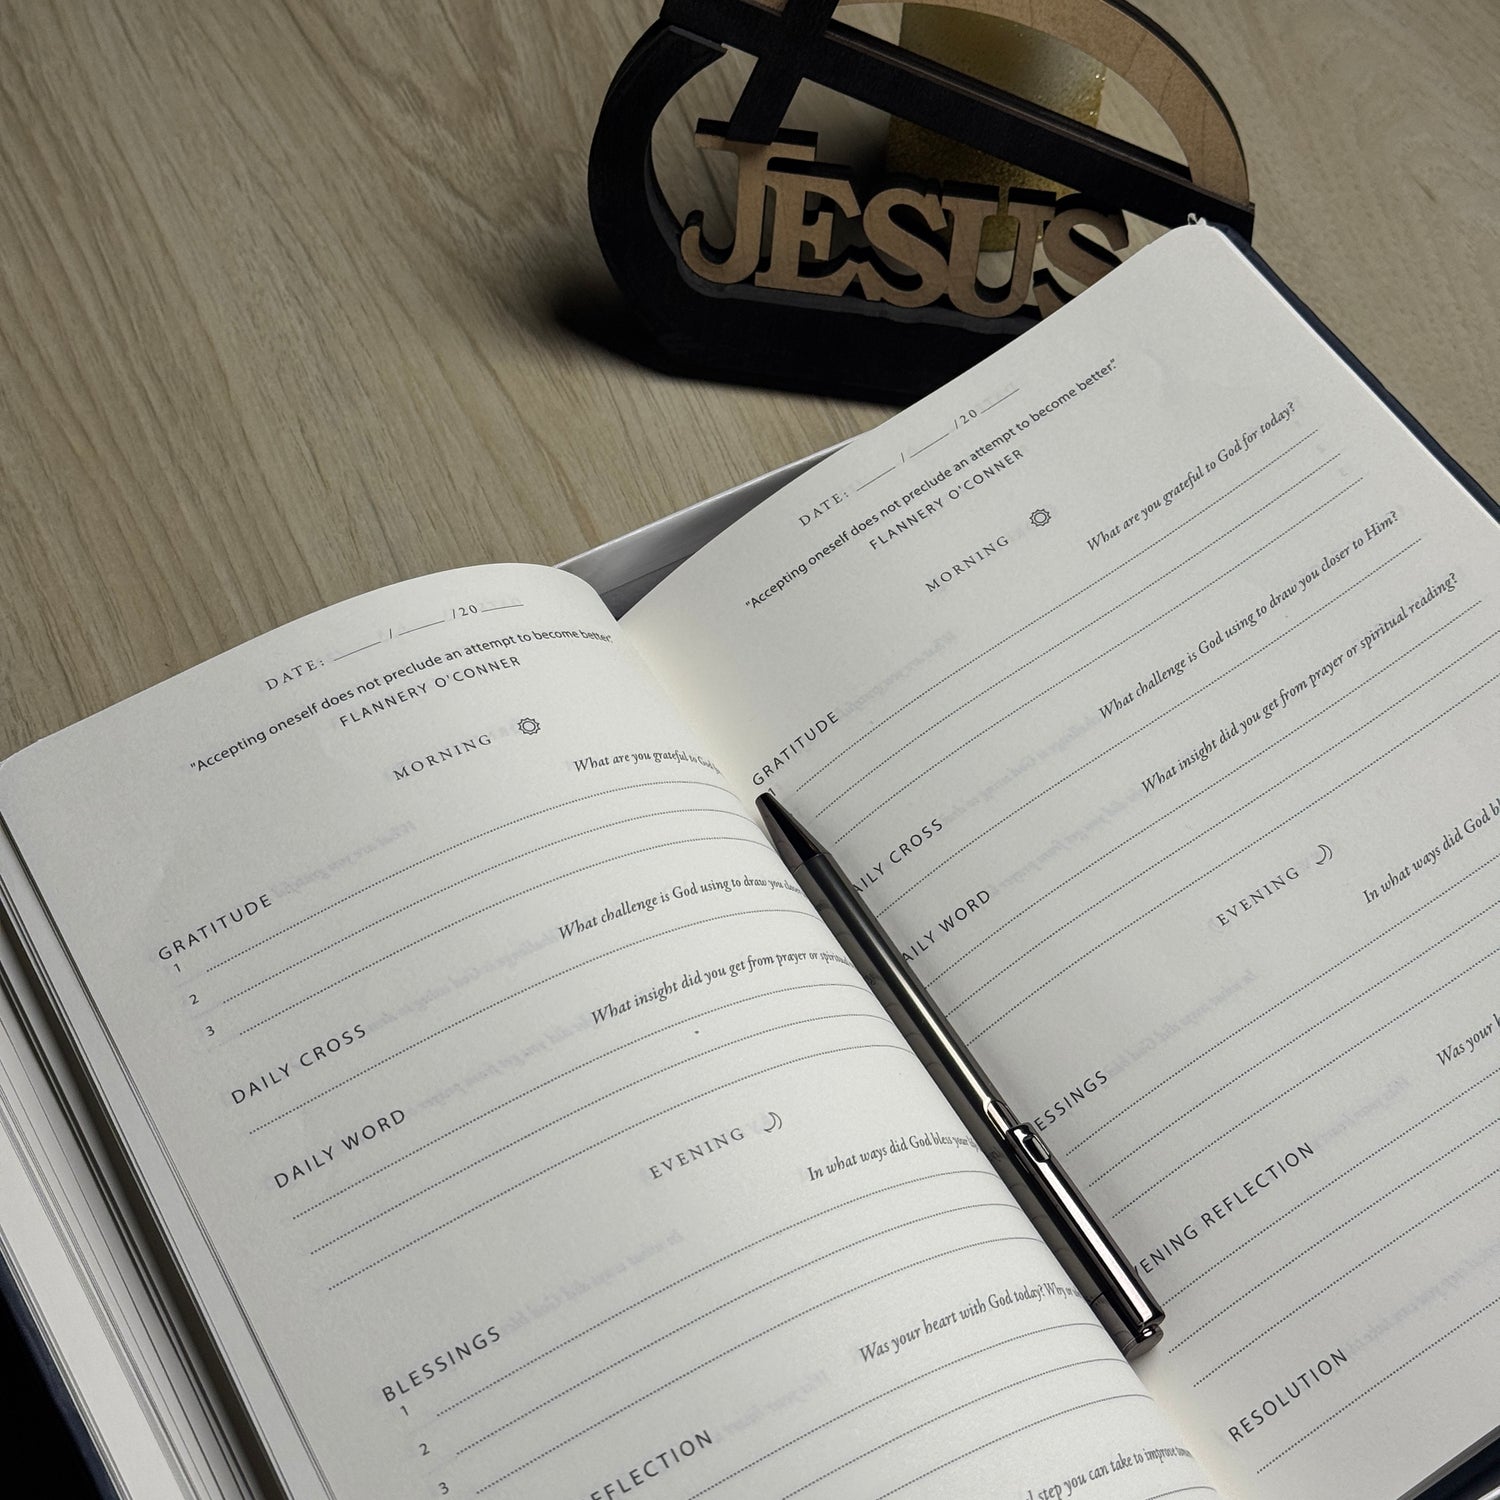 JESUS
DATE: ____ / ____ /20____
"Accepting oneself does not preclude an attempt to become better."
FLANNERY O'CONNER
MORNING
What are you grateful to God
GRATITUDE
1
2
3
What challenge is God using to draw you closer
DAILY CROSS
What insight did you get from prayer or spiritual
DAILY WORD
EVENING
In what ways did God bless your
BLESSINGS
1
2
3
Was your heart with God today? Why or
FLECTION
step you can take to improve
DATE: ____ / ____ /20____
"Accepting oneself does not preclude an attempt to become better."
FLANNERY O'CONNER
MORNING
What are you grateful to God for today?
GRATITUDE
1
What challenge is God using to draw you closer to Him?
AILY CROSS
What insight did you get from prayer or spiritual reading?
AILY WORD
EVENING
In what ways did God bl
ESSINGS
Was your h
VENING REFLECTION
RESOLUTION